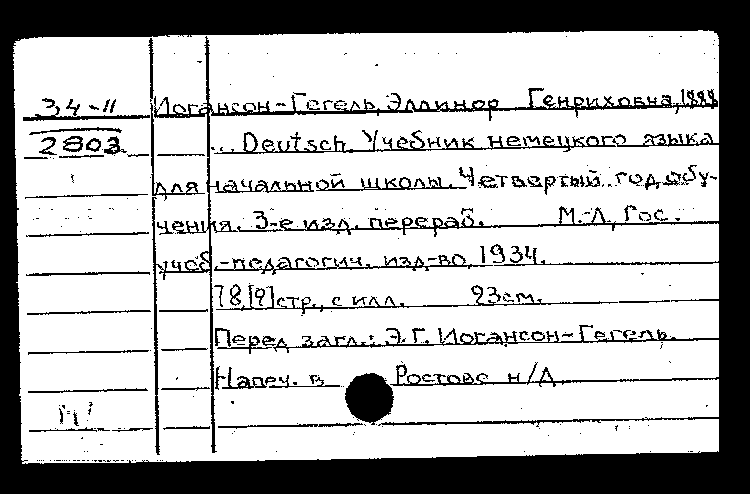 34-11 Иогансон-Гегель, Эллинор Генриховна, 1888
2803 ... Deutsch. Учебник немецкого языка
для начальной школы. Четвертый год обу-
чения. 3-е изд. перераб. М.-Л., Гос.
учеб.-педагогич. изд-во, 1934.
78,[2]стр., с илл. 23см.
Перед загл.: Э.Г. Иогансон-Гегель.
Напеч. в Ростове н/Д